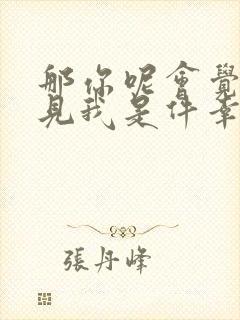 那你呢會覺
見我是件幸
張丹峰